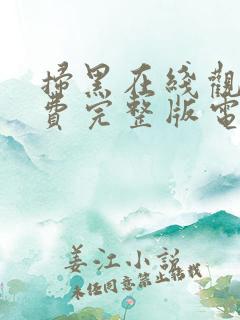 掃黑在綫觀
費完整版電
姜江小説
未經同意禁止轉載